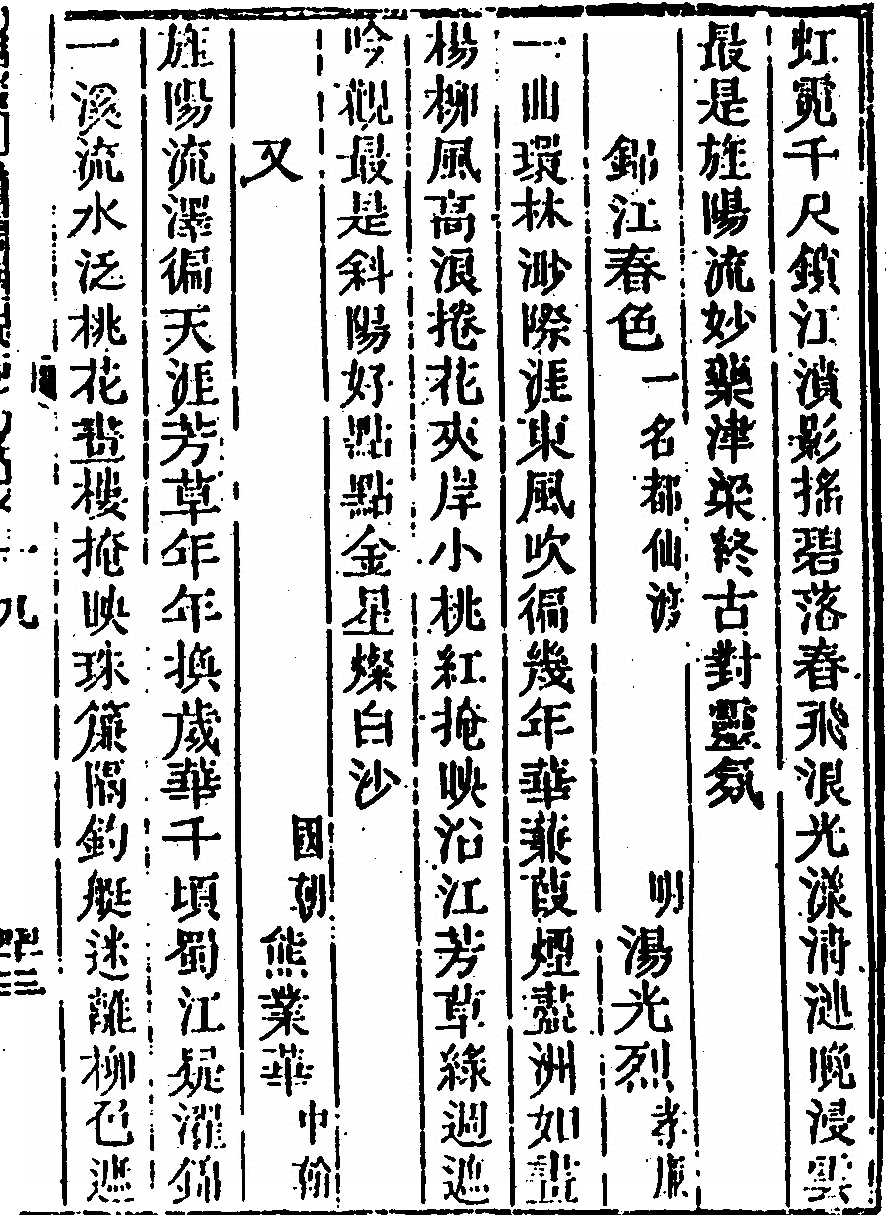 虹霓千尺鎖江濆影搖碧落春飛浪光漾清漣晚浸雲
最是旌陽流妙藥津梁終古對靈氛
錦江春色 一名都仙渡 明 湯光烈 孝廉
一曲環林渺際涯東風吹徧幾年華蒹葭煙洲如畫
楊柳風高浪捲花夾岸小桃紅掩映沿江芳草綠週遮
吟觀最是斜陽好點點金星燦白沙
又 國朝 熊業華 中翰
旌陽流澤徧天涯芳草年年換歲華千頃蜀江疑濯錦
一溪流水泛桃花畫樓掩映珠簾隔釣艇迷離柳色遮
九